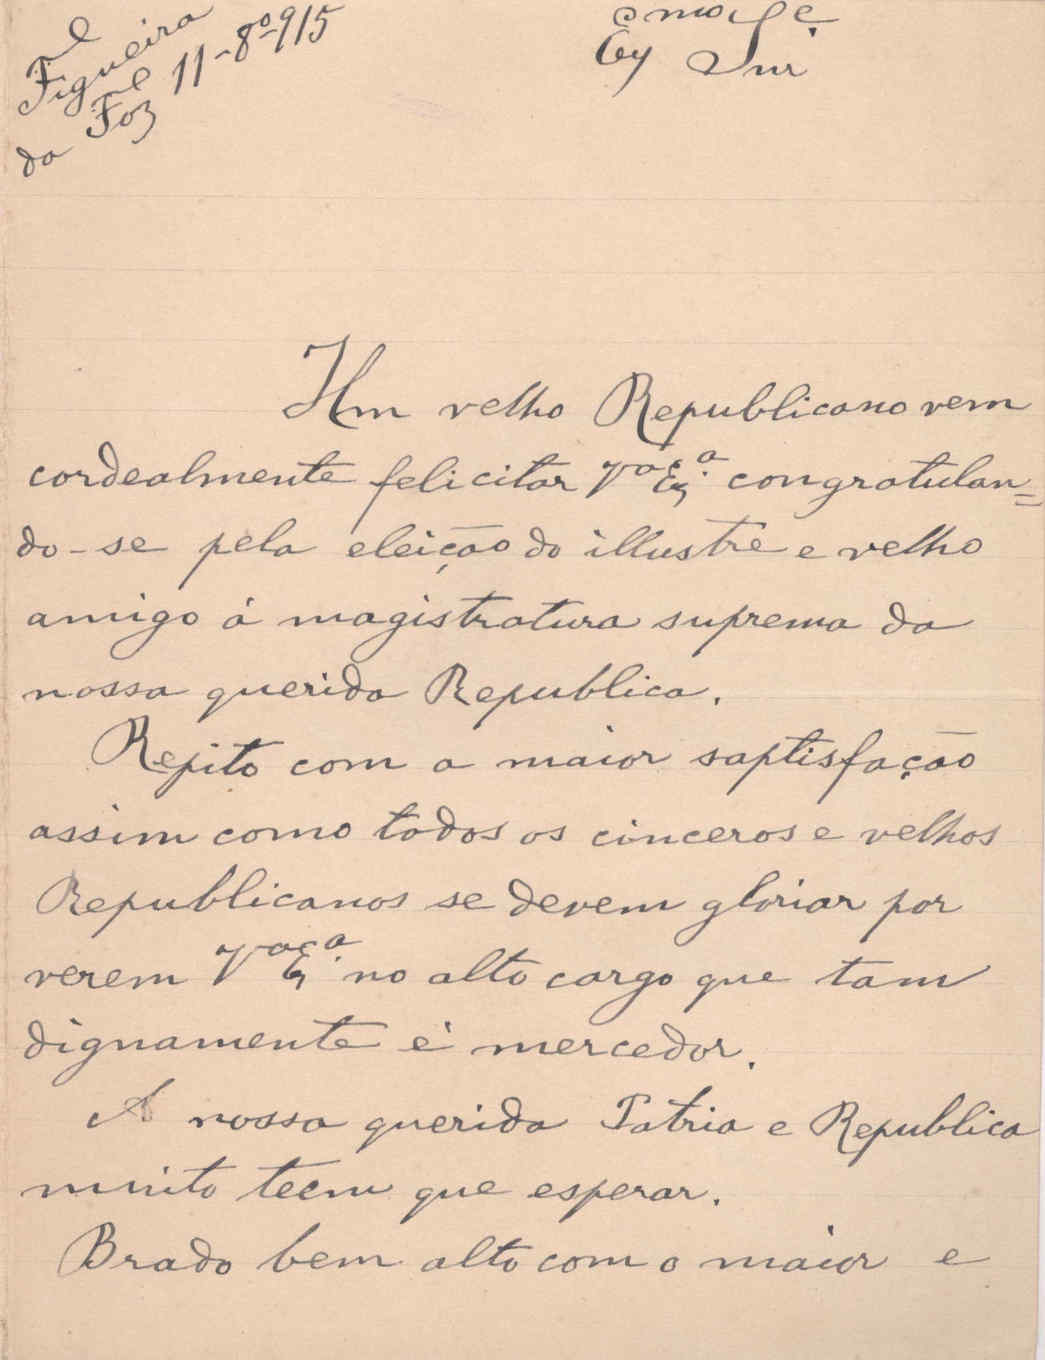 Figueira
da Foz 11-8º-915
Ex Snr
Um velho Republicano vem
cordealmente felicitar Vª Exª congratulan=
do-se pela eleição do illustre e velho
amigo á magistratura suprema da
nossa querida Republica.
Repito com a maior saptisfação
assim como todos os cinceros e velhos
Republicanos se devem gloriar por
verem Vª Exª no alto cargo que tam
dignamente é mercedor.
A nossa querida Patria e Republica
muito teem que esperar.
Brado bem alto com o maior e